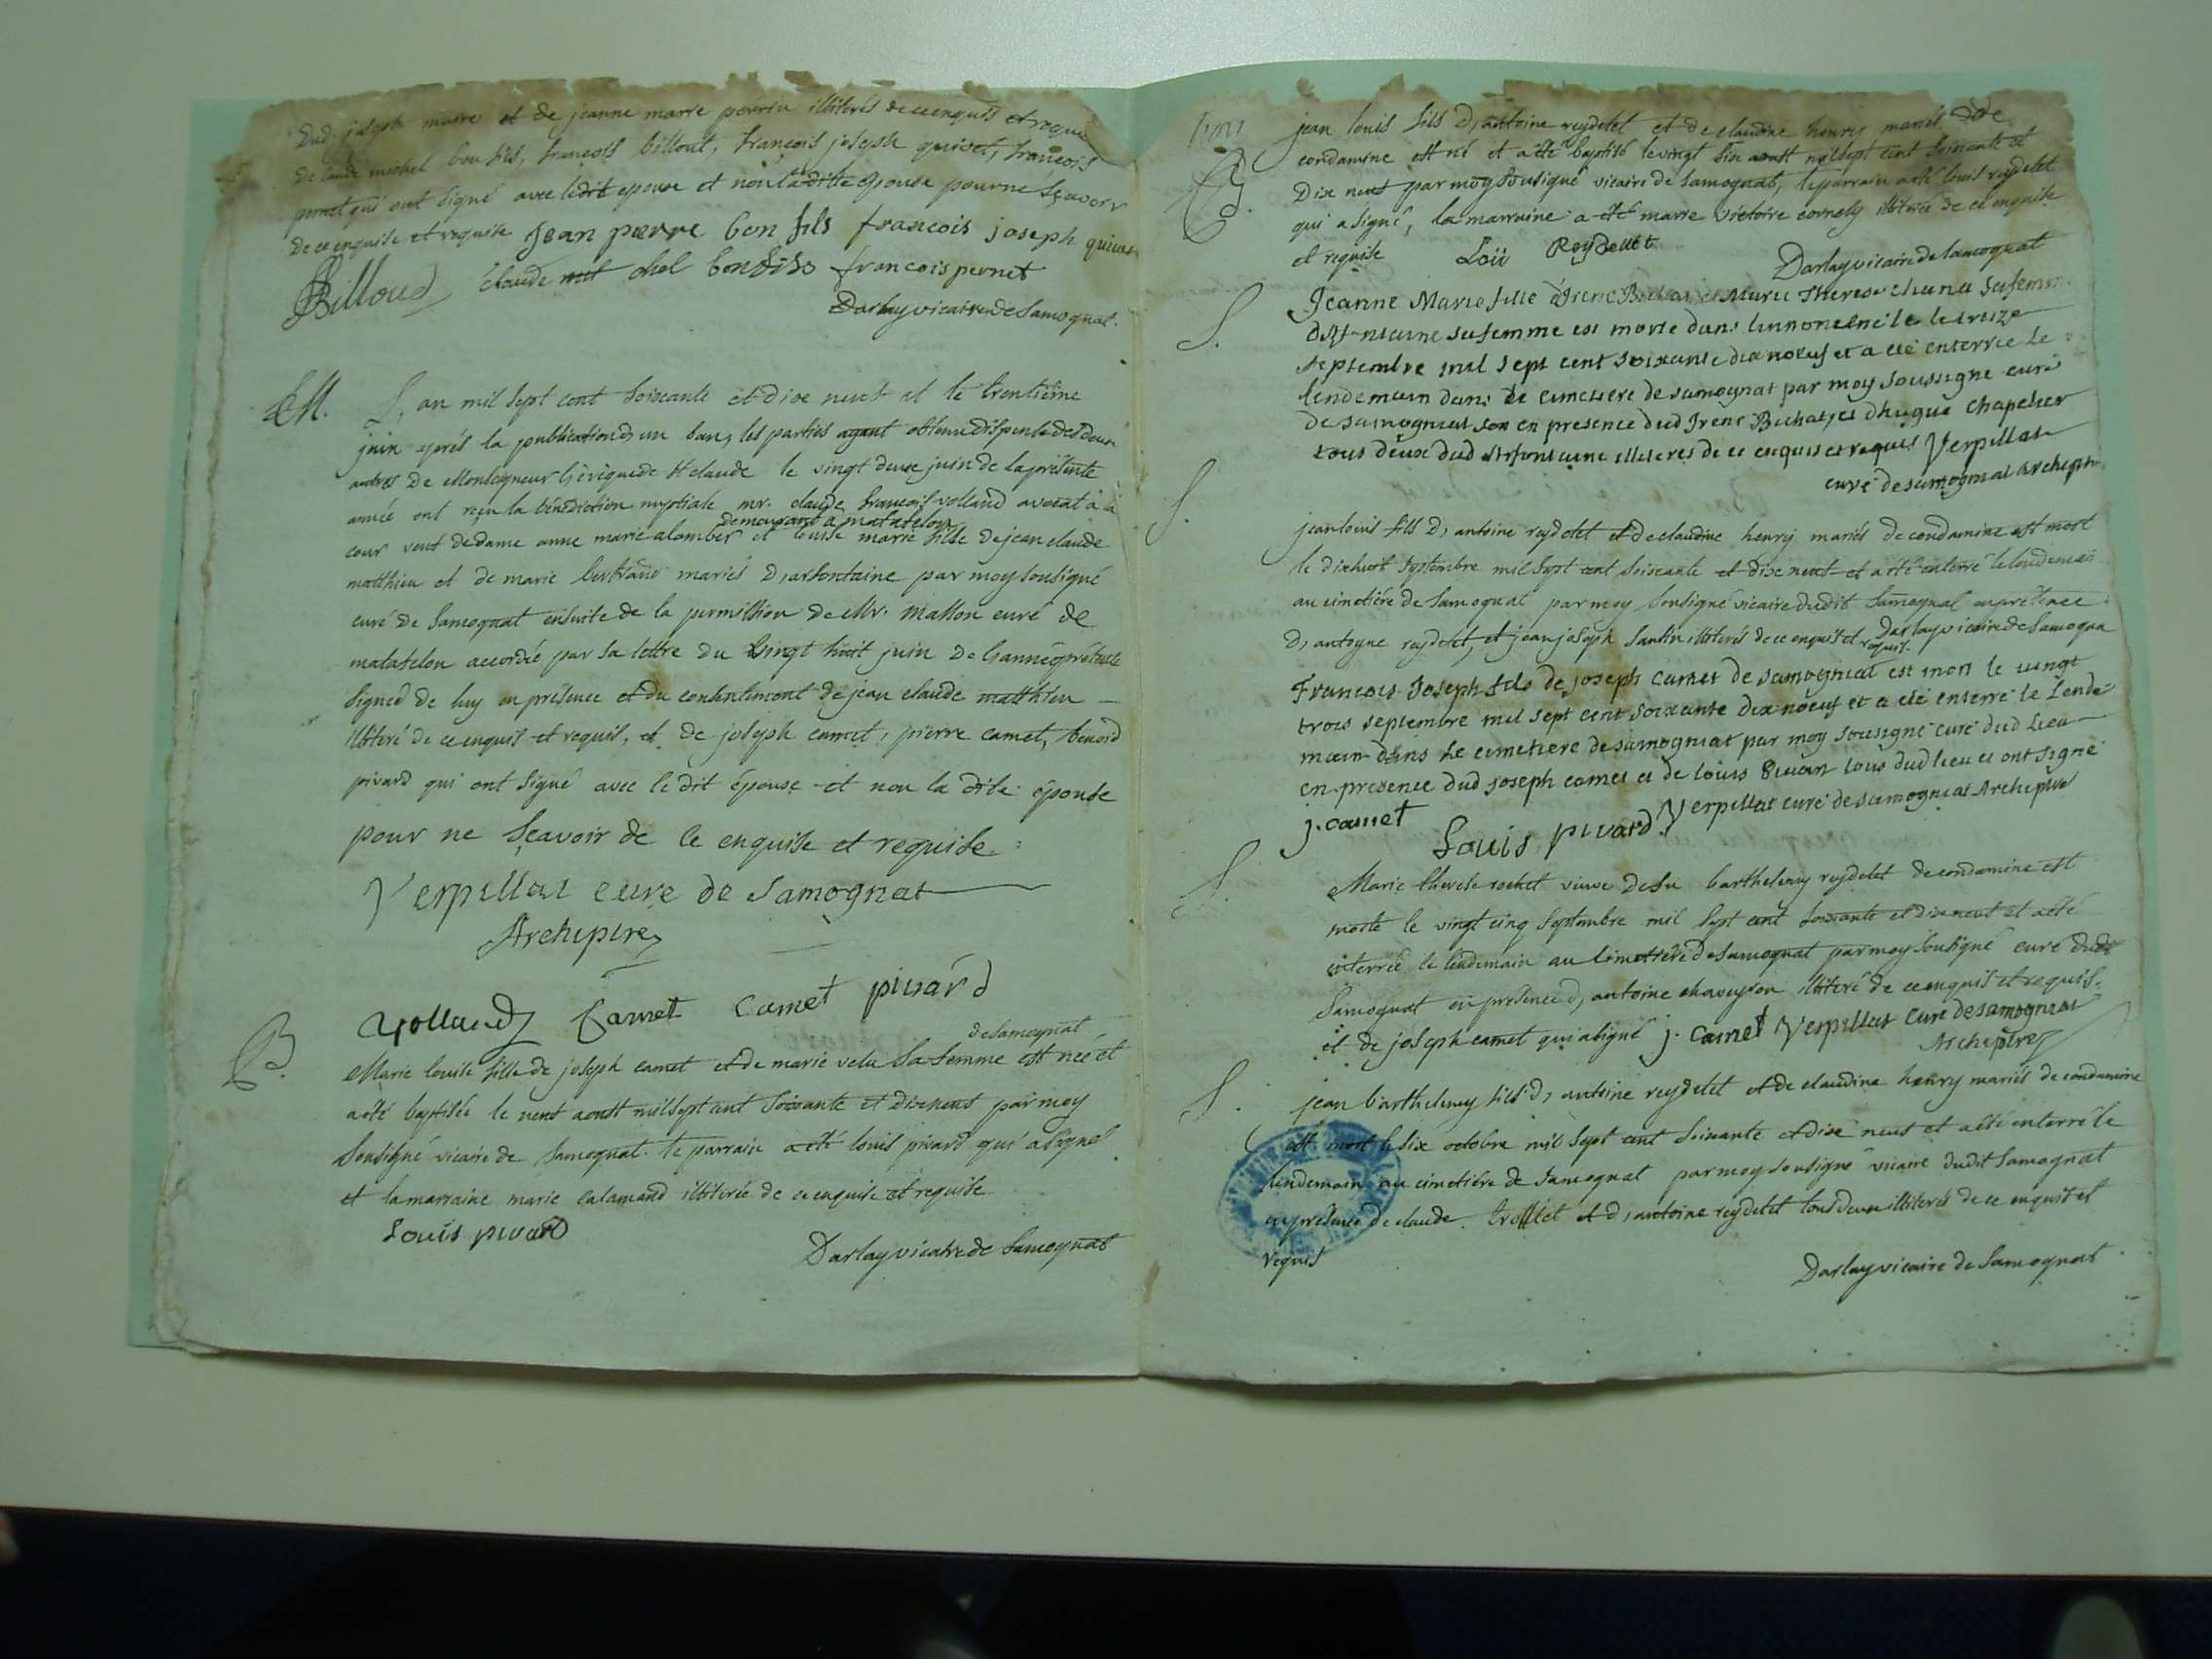 dud joseph maire et de jeanne marie perrin illiterés de ce enquis et requis
de claude michel bon fils, françois billout, françois joseph quivet, françois
pernet qui ont signé avec ledit epoux et non ladite epouse pour ne sçavoir
de ce enquise et requise jean pierre bon fils francois joseph quivet
Billoud claude mil chel bonfils francois pernet
Darlay vicaire de Samognat.
M. L'an mil sept cent soixante et dix neuf et le trentième
juin après la publication d'un ban, les parties ayant obtenu dispense des deux
autres de Monseigneur l'évêque de st claude le vingt deux juin de la présente
année ont reçu la bénédiction nuptiale mr. claude françois volland avocat à la
demeurant à matafelon
cour veuf de dame anne marie alomber et louise marie fille de jean claude
matthieu et de marie bertrand mariés d'arfontaine par moy sousigné
curé de Samognat ensuite de la permission de Mr. Masson curé de
matafelon accordée par sa lettre du vingt huit juin de l'année présente
signed de luy en présence et du consentiment de jean claude matthieu
illiteré de ce enquis et requis, et de joseph camet, pierre camet, benoid
pivard qui ont signé avec le dit épouse et non la dite épouse
pour ne sçavoir de ce enquise et requise.
Verpillat curé de Samognat
Archiptre
Volland Camet Camet pivard
de samognat
B. Marie louise fille de joseph camet et de marie velu sa femme est née et
a été baptisée le neuf aoust mil sept cent soixante et dix neuf par moy
sousigné vicaire de samognat. le parrain a été louis pivard qui a signé
et la marraine marie calamand illiterée de ce enquise et requise
Louis pivard
Darlay vicaire de Samognat
jean louis fils d'antoine reydelet et de claudine henry mariés de
condamine est né et a été baptisé le vingt six aoust mil sept cent soixante et
B. dix neuf par moy sousigné vicaire de samognat, le parrain a été louis reydelet
qui a signé, la marraine a été marie victoire cornely illiterée de ce enquise
et requise Loüi Reydellet
Darlay vicaire de Samognat
S. Jeanne Marie fille d'Irené Bichat et Marie Therese chana sa femme
sa femme est morte dans le treize
septembre mil sept cent soixante dix noeuf et a été enterrée le
lendemain dans le cimetiere de samogniat par moy soussigné curé
de samogniat son en presence dud Irené Bichat et d'hugue chapelier
tous deux dud Arfontaine illiteres de ce enquis et requis Verpillat
curé de samogniat Archiptre
S. jean louis fils d'antoine reydelet et de claudine henry mariés de condamine est mort
le dixhuit septembre mil sept cent soixante et dix neuf et a été enterré le lendemain
au cimetière de Samognat par moy sousigné vicaire dudit Samognat en présence
d'antoyne reydelet, et jean joseph santin illiterés de ce enquis et requis. Darlay vicaire de Samognat
Francois Joseph fils de joseph camet de samogniat est mort le vingt
trois septembre mil sept cent soixante dix noeuf et a été enterré le Lende
main dans le cimetiere de samogniat par moy sousigné curé dud Lieu
en presence dud joseph camet et de louis Pivart tous dud lieu et ont signé
j. camet Louis pivard Verpillat curé de samogniat Archiptre
S. Marie therese rochet veuve de fu barthelemy reydelet de condamine est
morte le vingt cinq septembre mil sept cent soixante et dix neuf et a été
enterrée le lendemain au cimetière de Samognat par moy sousigné curé dudit
Samognat en présence d'antoine chaveyron illiteré de ce enquis et requis.
et de joseph camet qui a signé j. camet Verpillat curé de samogniat
Archiptre
S. jean barthelemy fils d'antoine reydelet et de claudine henry mariés de condamine
est mort le six octobre mil sept cent soixante et dix neuf et a été enterré le
lendemain au cimetière de Samognat par moy sousigné vicaire dudit Samognat
en présence de claude trollet et d'antoine reydelet tous deux illiterés de ce enquis et
requis
Darlay vicaire de Samognat